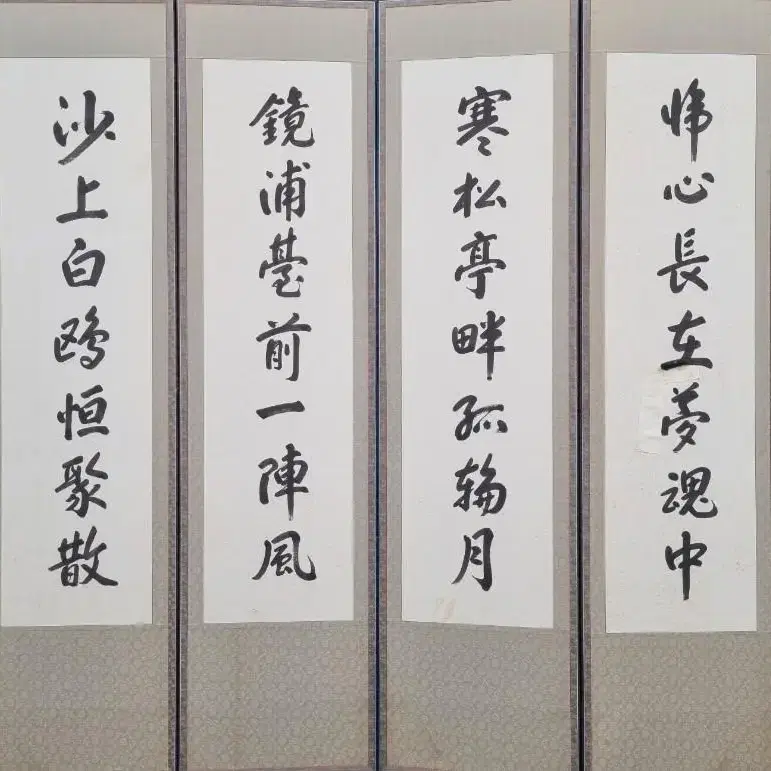 帰心長在夢魂中
寒松亭畔孤輪月
鏡浦臺前一陣風
沙上白鷗恒聚散